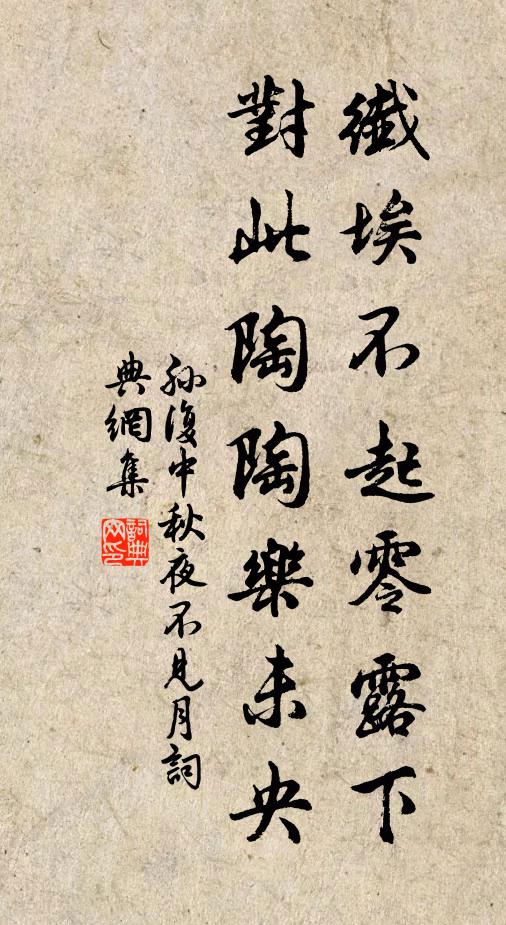 纖埃不起零露下
對此陶陶樂未央
孫復中秋夜不見月詞
典網集
詞典网印